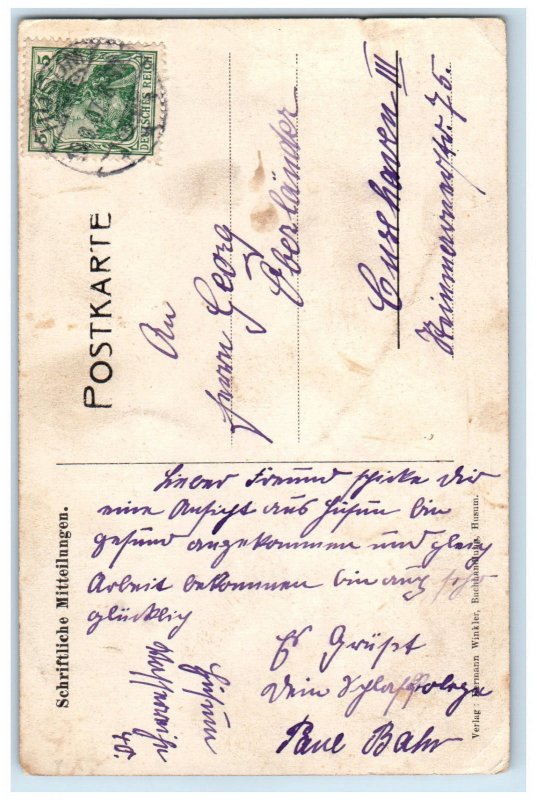 DEUTSCHES REICH
5 5
POSTKARTE
An
Herrn Georg
Oberländer
Cuxhaven III
75.
Schriftliche Mitteilungen.
Lieber Freund schicke Dir
eine Ansicht aus Husum bin
gesund angekommen und gleich
Arbeit bekommen bin auch sehr
glücklich
Es Grüßt
Dein Schlafkolege
Paul Bahr
Husum
Verlag: Hermann Winkler, Buchhandlung, Husum.